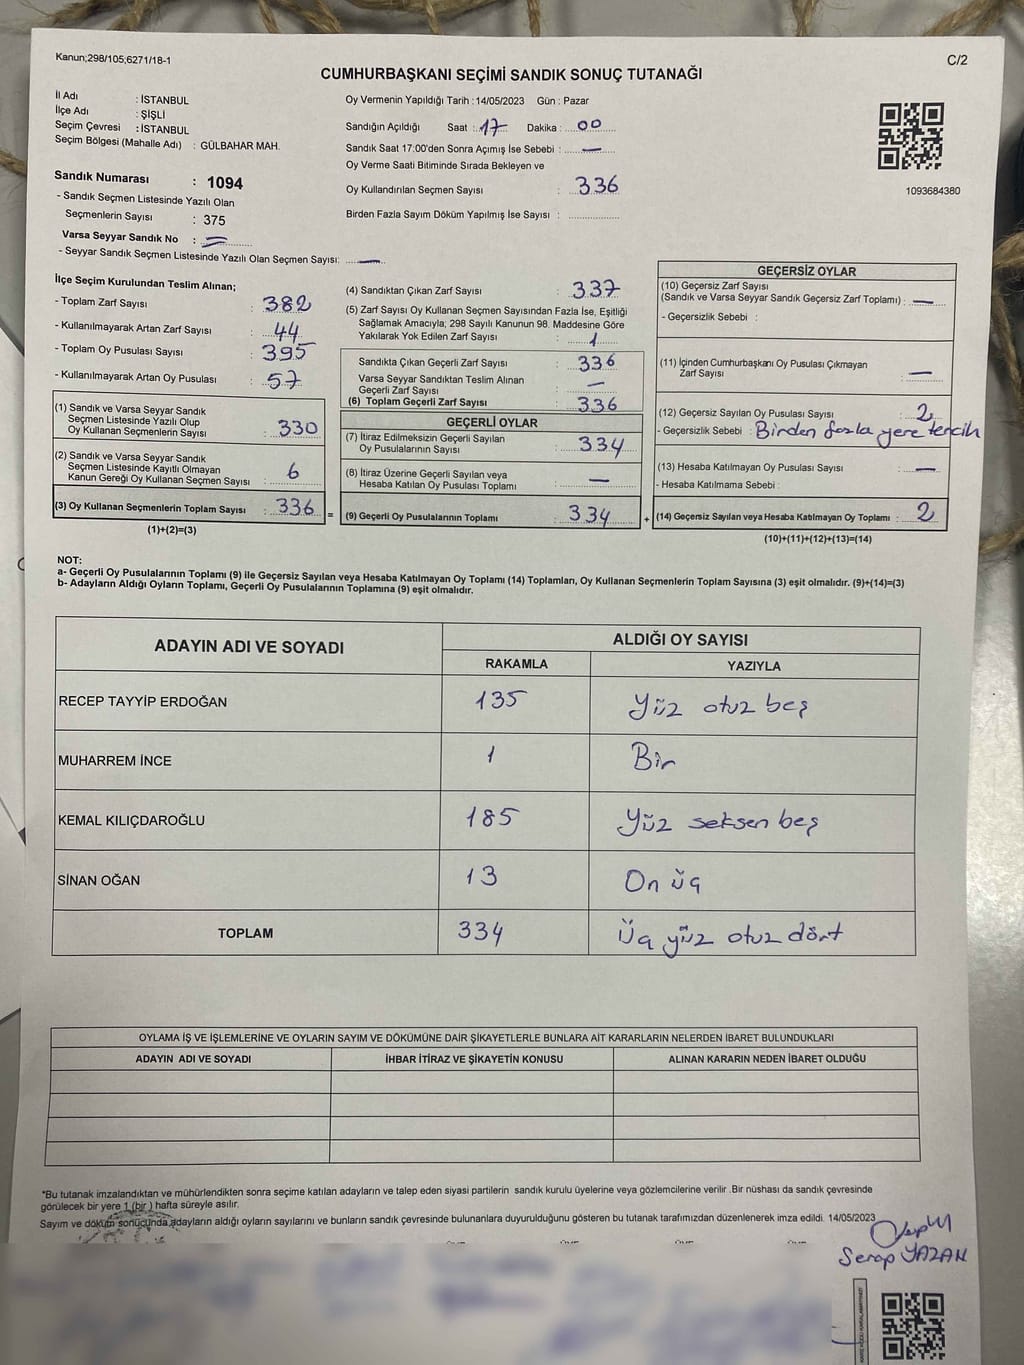 Kanun;298/105;6271/18-1
C/2
CUMHURBAŞKANI SEÇİMİ SANDIK SONUÇ TUTANAĞI
İl Adı : İSTANBUL
İlçe Adı : ŞİŞLİ
Seçim Çevresi : İSTANBUL
Seçim Bölgesi (Mahalle Adı) : GÜLBAHAR MAH.
Sandık Numarası : 1094
- Sandık Seçmen Listesinde Yazılı Olan
Seçmenlerin Sayısı : 375
Varsa Seyyar Sandık No :
- Seyyar Sandık Seçmen Listesinde Yazılı Olan Seçmen Sayısı:
Oy Vermenin Yapıldığı Tarih : 14/05/2023 Gün : Pazar
Sandığın Açıldığı Saat : 17 Dakika : 00
Sandık Saat 17:00'den Sonra Açımış İse Sebebi : —
Oy Verme Saati Bitiminde Sırada Bekleyen ve
Oy Kullandırılan Seçmen Sayısı : 336
Birden Fazla Sayım Döküm Yapılmış İse Sayısı :
1093684380
İlçe Seçim Kurulundan Teslim Alınan;
- Toplam Zarf Sayısı : 382
- Kullanılmayarak Artan Zarf Sayısı : 44
- Toplam Oy Pusulası Sayısı : 395
- Kullanılmayarak Artan Oy Pusulası : 57
(1) Sandık ve Varsa Seyyar Sandık
Seçmen Listesinde Yazılı Olup
Oy Kullanan Seçmenlerin Sayısı : 330
(2) Sandık ve Varsa Seyyar Sandık
Seçmen Listesinde Kayıtlı Olmayan
Kanun Gereği Oy Kullanan Seçmen Sayısı : 6
(3) Oy Kullanan Seçmenlerin Toplam Sayısı : 336 =
(1)+(2)=(3)
(4) Sandıktan Çıkan Zarf Sayısı : 337
(5) Zarf Sayısı Oy Kullanan Seçmen Sayısından Fazla İse, Eşitliği
Sağlamak Amacıyla; 298 Sayılı Kanunun 98. Maddesine Göre
Yakılarak Yok Edilen Zarf Sayısı : 1
Sandıkta Çıkan Geçerli Zarf Sayısı : 336
Varsa Seyyar Sandıktan Teslim Alınan
Geçerli Zarf Sayısı : —
(6) Toplam Geçerli Zarf Sayısı : 336
GEÇERLİ OYLAR
(7) İtiraz Edilmeksizin Geçerli Sayılan
Oy Pusulalarının Sayısı : 334
(8) İtiraz Üzerine Geçerli Sayılan veya
Hesaba Katılan Oy Pusulası Toplamı : —
(9) Geçerli Oy Pusulalarının Toplamı : 334 +
GEÇERSİZ OYLAR
(10) Geçersiz Zarf Sayısı
(Sandık ve Varsa Seyyar Sandık Geçersiz Zarf Toplamı) : —
- Geçersizlik Sebebi :
(11) İçinden Cumhurbaşkanı Oy Pusulası Çıkmayan
Zarf Sayısı : —
(12) Geçersiz Sayılan Oy Pusulası Sayısı : 2
- Geçersizlik Sebebi : Birden fazla yere tercih
(13) Hesaba Katılmayan Oy Pusulası Sayısı : —
- Hesaba Katılmama Sebebi :
(14) Geçersiz Sayılan veya Hesaba Katılmayan Oy Toplamı : 2
(10)+(11)+(12)+(13)=(14)
NOT:
a- Geçerli Oy Pusulalarının Toplamı (9) ile Geçersiz Sayılan veya Hesaba Katılmayan Oy Toplamı (14) Toplamları, Oy Kullanan Seçmenlerin Toplam Sayısına (3) eşit olmalıdır. (9)+(14)=(3)
b- Adayların Aldığı Oyların Toplamı, Geçerli Oy Pusulalarının Toplamına (9) eşit olmalıdır.
ADAYIN ADI VE SOYADI
ALDIĞI OY SAYISI
RAKAMLA YAZIYLA
RECEP TAYYİP ERDOĞAN 135 Yüz otuz beş
MUHARREM İNCE 1 Bir
KEMAL KILIÇDAROĞLU 185 Yüz seksen beş
SİNAN OĞAN 13 On üç
TOPLAM 334 Üç yüz otuz dört
OYLAMA İŞ VE İŞLEMLERİNE VE OYLARIN SAYIM VE DÖKÜMÜNE DAİR ŞİKAYETLERLE BUNLARA AİT KARARLARIN NELERDEN İBARET BULUNDUKLARI
ADAYIN ADI VE SOYADI İHBAR İTİRAZ VE ŞİKAYETİN KONUSU ALINAN KARARIN NEDEN İBARET OLDUĞU
*Bu tutanak imzalandıktan ve mühürlendikten sonra seçime katılan adayların ve talep eden siyasi partilerin sandık kurulu üyelerine veya gözlemcilerine verilir .Bir nüshası da sandık çevresinde
görülecek bir yere 1 (bir ) hafta süreyle asılır.
Sayım ve döküm sonucunda adayların aldığı oyların sayılarını ve bunların sandık çevresinde bulunanlara duyurulduğunu gösteren bu tutanak tarafımızdan düzenlenerek imza edildi. 14/05/2023
Serap YAZAN